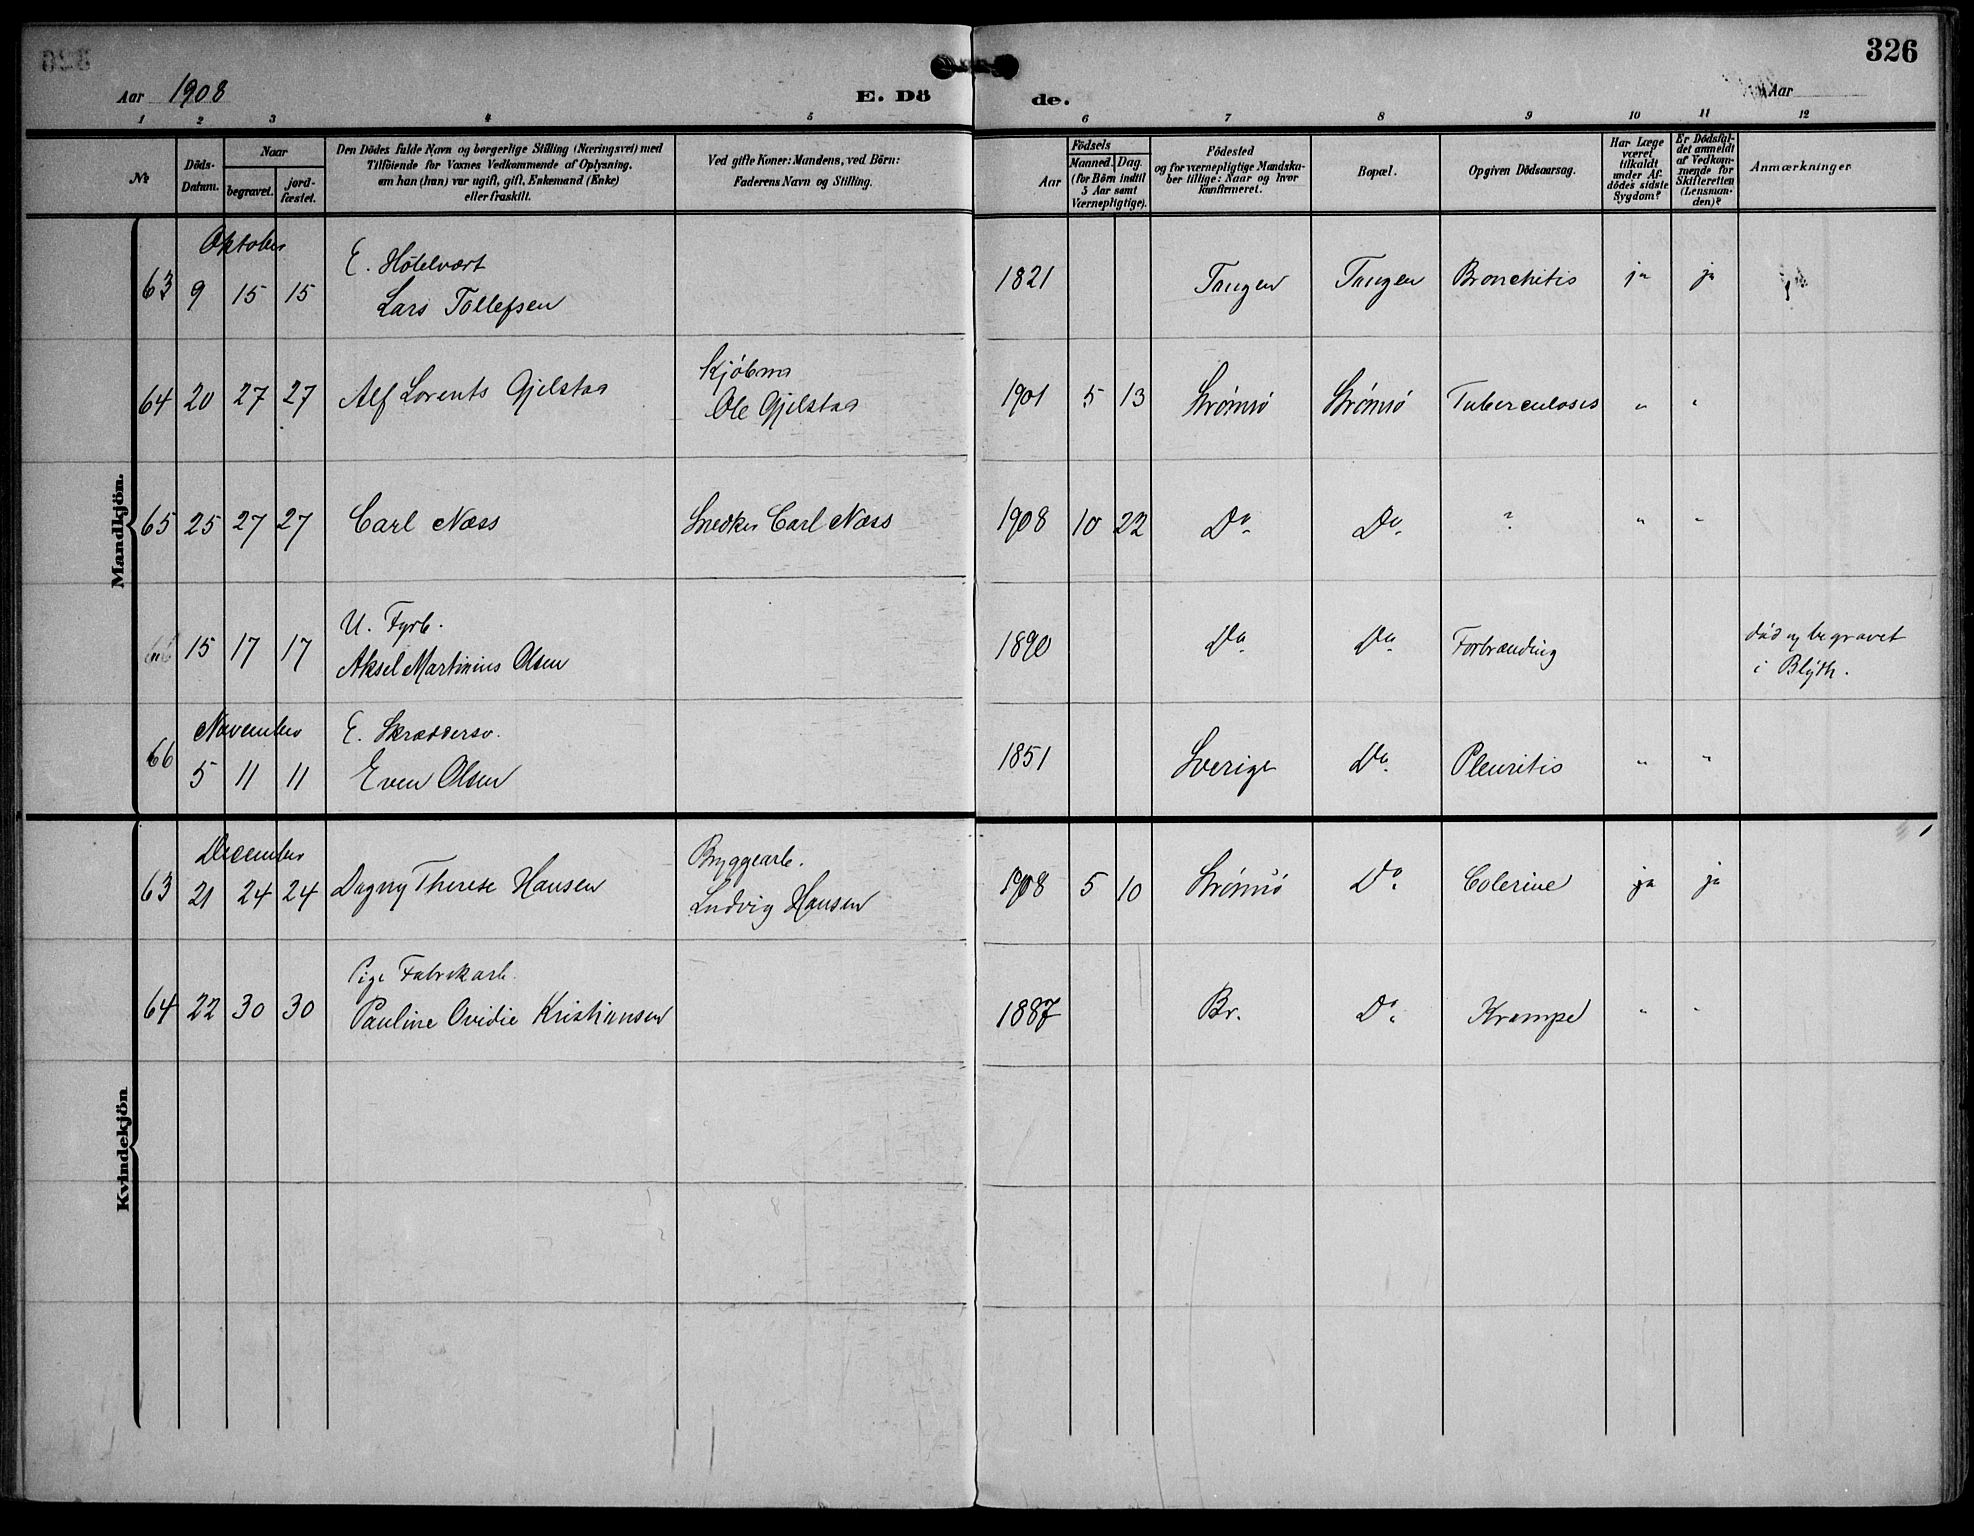 326
Aar 1908
E. Dö
de.
Aar
1 2 3 4 5 6 7 8 9 10 11 12
No
Döds-
Datum.
Naar
begravet.
jord-
fæstet.
Den Dödes fulde Navn og borgerlige Stilling (Næringsvei) med
Tilföiende for Voxnes Vedkommende af Oplysning,
om han (hun) var ugift, gift, Enkemand (Enke)
eller fraskilt.
Ved gifte Koner: Mandens, ved Börn:
Faderens Navn og Stilling.
Aar
Födsels
Maaned. Dag.
(for Börn indtil
5 Aar samt
Værnepligtige).
Födested
og for værnepligtige Mandska-
ber tillige: Naar og hvor
konfirmeret.
Bopæl.
Opgiven Dödsaarsag.
Har Læge
været
tilkaldt
under Af-
dödes sidste
Sygdom?
Er Dödsfal-
det anmeldt
af Vedkom-
mende for
Skifteretten
(Lensman-
den)?
Anmærkninger
Mandkjön.
Oktober
E. Hôtelvært
63 9 15 15 Lars Tollefsen 1821 Tangen Tangen Bronchitis ja ja
Kjøbm
64 20 27 27 Alf Lorents Gjelstad Ole Gjelstad 1901 5 13 Strømsø Strømsø Tuberculosis " "
65 25 27 27 Carl Næss Snedker Carl Næss 1908 10 22 Do. Do. ? " "
U. Fyrb.
66 15 17 17 Aksel Martinius Olsen 1890 Do. Do. Forbrænding død og begravet
i Blyth.
November
E. Skræddersv.
66 5 11 11 Even Olsen 1851 Sverige Do. Pleuritis " "
Kvindekjön
December
Bryggearb.
63 21 24 24 Dagny Therese Hansen Ludvig Hansen 1908 5 10 Strømsø Do. Colerine ja ja
Pige Fabrikarb.
64 22 30 30 Pauline Ovidie Kristiansen 1887 Br. Do. Krampe " "